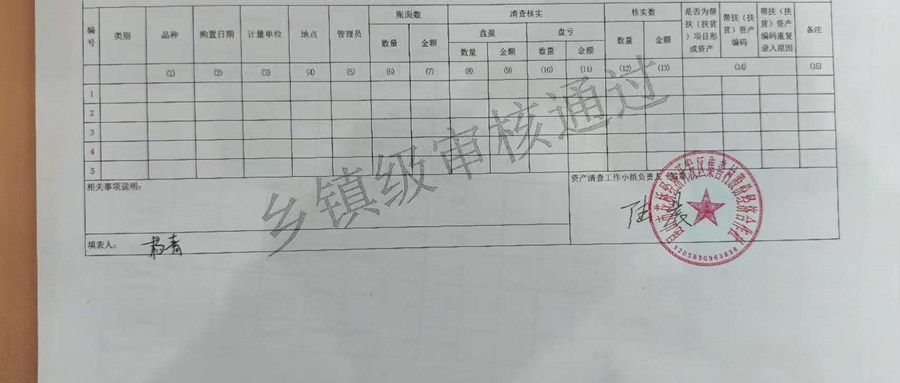 编号 类别 品种 购置日期 计量单位 地点 管理员 账面数 清查核实 核实数 是否为帮扶（扶贫）项目形成资产 帮扶（扶贫）资产编码 帮扶（扶贫）资产编码重复录入原因 备注
数量 金额 盘盈 盘亏 数量 金额
数量 金额 数量 金额
(1) (2) (3) (4) (5) (6) (7) (8) (9) (10) (11) (12) (13) (14) (15)
1
2
3
4
5
乡镇级审核通过
相关事项说明：
资产清查工作小组负责人
填表人：
杨青